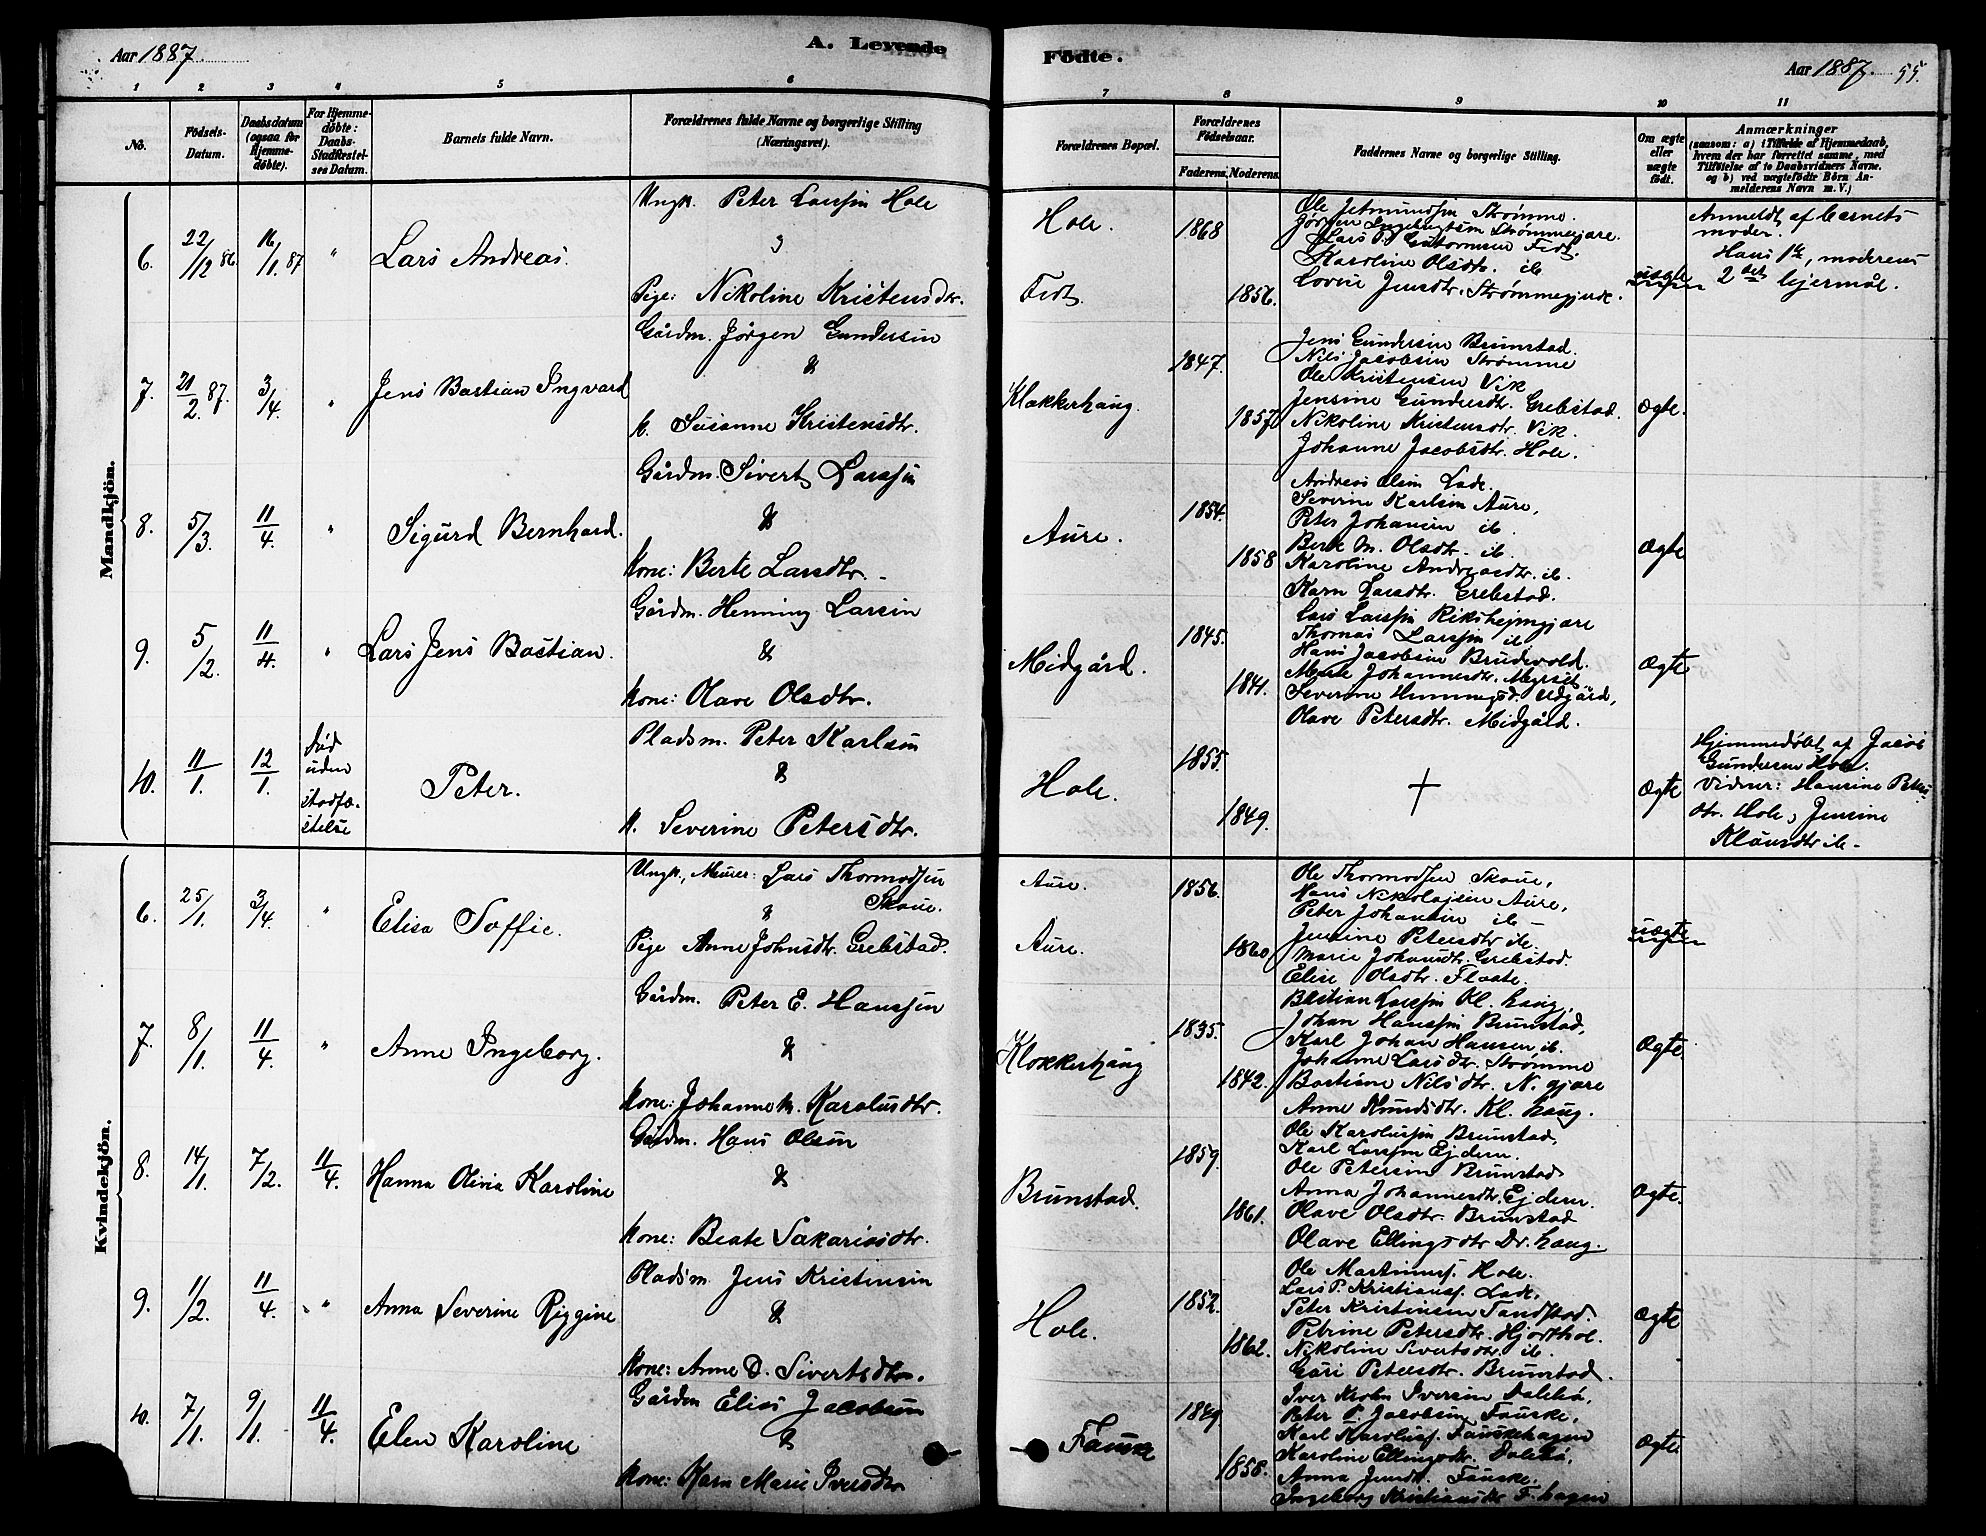 Aar 1887.
A. Levende
Födte.
Aar 1887. 55.
1 2 3 4 5 6 7 8 9 10 11
No.
Födsels-
Datum.
Daabsdatum
(ogsaa for
Hjemme-
døbte).
For Hjemme-
døbte:
Daabs-
Stadfæstel-
ses Datum.
Barnets fulde Navn.
Forældrenes fulde Navne og borgerlige Stilling
(Næringsvei).
Forældrenes Bopæl.
Forældrenes
Födselsaar.
Faderens. Moderens.
Faddernes Navne og borgerlige Stilling.
Om ægte
eller
uægte
født.
Anmærkninger
(saasom: a) i Tilfælde af Hjemmedaab,
hvem der har forrettet samme, med
Tilföielse af to Daabsvidners Navne.
og b) ved uægtefödte Börn An-
melderens Navn m. V.)
Mandkjön.
6. 22/12 86. 16/1 87 " Lars Andreas.
Ungk. Peter Larssen Hole
Pige: Nikoline Kristensdtr.
Hole.
Fedt.
1868
1856.
Ole Jetmundsen Strømme.
Jørgen Ingebrigtsen Strømmegjære.
Lars P. Guttormsen Fedt.
Karoline Olsdtr. ib
Lovise Jensdtr. Strømmegjerde.
uægte
Anmeldt af barnets
moder.
Hans 1te, moderens
2det lejermål.
7. 21/2 87. 3/4. " Jens Bastian Ingvard
Gårdm. Jørgen Gundersen
&
k. Susanne Kristensdtr.
Klokkerhaug.
1847.
1857
Jens Gundersen Brunstad.
Nils Jacobsen Strømme
Ole Kristensen Vik
Jensine Gundersdtr. Grebstad.
Nikoline Kristensdtr. Vik.
Johanne Jacobsdtr. Hole.
Ægte.
8. 5/3. 11/4. " Sigurd Bernhard.
Gårdm. Sivert Larssen
&
Kone: Berte Larsdtr.
Aure.
1854.
1858
Andreas Olsen Lade.
Severine Karlsen Aure,
Peter Johansen ib.
Berte M. Olsdtr. ib.
Karoline Andreasdtr. ib.
Karn Larsdtr. Grebstad.
Ægte
9. 5/2. 11/4. " Lars Jens Bastian.
Gårdm. Henning Larsen
&
Kone: Olave Olsdtr.
Midgård.
1845.
1841.
Lars Larssen Rikshejmgjære
Thomas Larssen ib
Hans Jacobsen Brudevold.
Johannesdtr. Myrset
Severine Udgård,
Olave Petersdtr. Midgård.
Ægte
10. 11/1. 12/1. Død
uden
stadfæ-
stelse
Peter.
Pladsm. Peter Karlsen
&
k. Severine Petersdtr.
Hole.
1855.
1849.
+
Ægte
Hjemmedøbt af Jacob
Gundersen Hole.
Vidner: Hansine Peters
dtr. Hole, Jensine
Klausdtr ib.
Kvindekjön.
6. 25/1. 3/4. " Elisa Soffie.
Ungk., Murer: Lars Thormodsen
Skoue.
&
Pige Anne Johnsdtr. Grebstad.
Aure.
Aure.
1856.
1860
Ole Thormodsen Skoue,
Hans Nikolajsen Aure,
Peter Johansen ib
Jensine Petersdtr ib.
Marie Johansdtr. Grebstad.
Elise Olsdtr. Flaate.
uægte
7. 8/1. 11/4. " Anne Ingeborg.
Gårdm. Peter E. Hanssen
&
Kone: Johanne M. Karolusdtr.
Klokkerhaug
1835.
1842.
Bastian Larssen Kl. haug,
Johan Hanssen Brunstad,
Karl Johan Hansen ib.
Johanne Larsdtr. Strømme
Bastine Nilsdtr. N. gjære
Anne Knudsdtr. Kl. haug.
Ægte.
8. 14/1. 7/2. 11/4. Hanna Olivia Karoline
Gårdm. Hans Olsen
&
Kone: Beate Sakariasdtr.
Brunstad.
1859.
1861.
Ole Karolussen Brunstad,
Karl Larssen Ejdem.
Ole Petersen Brunstad
Anna Johannesdtr. Ejdem.
Olave Olsdtr. Brunstad
Olave Ellingsdtr Dr. haug.
Ægte.
9. 1/2. 11/4. " Anna Severine Riggine
Pladsm. Jens Kristensen
&
Kone: Anne D. Sivertsdtr.
Hole.
1852.
1862.
Ole Martinuss. Hole.
Lars P. Kristianss. Lade,
Peter Kristensen Tandstad.
Petrine Petersdtr. Hjorthol.
Nikoline Sivertsdtr. ib.
Guri Petersdtr. Brunstad.
Ægte
10. 7/1. 9/1. 11/4. Elen Karoline
Gårdm Elias Jacobsen
&
Kone: Karn Marie Iversdtr
Fauske
1849
1858.
Iver Krohn Iversen Dalebø,
Peter P. Jacobsen Fauske,
Karl Karoluss. Fauskehagen
Karoline Ellingsdtr. Dalebø,
Anna Jensdtr. Fauske.
Ingeborg Kristiansdtr F. hagen
Ægte.